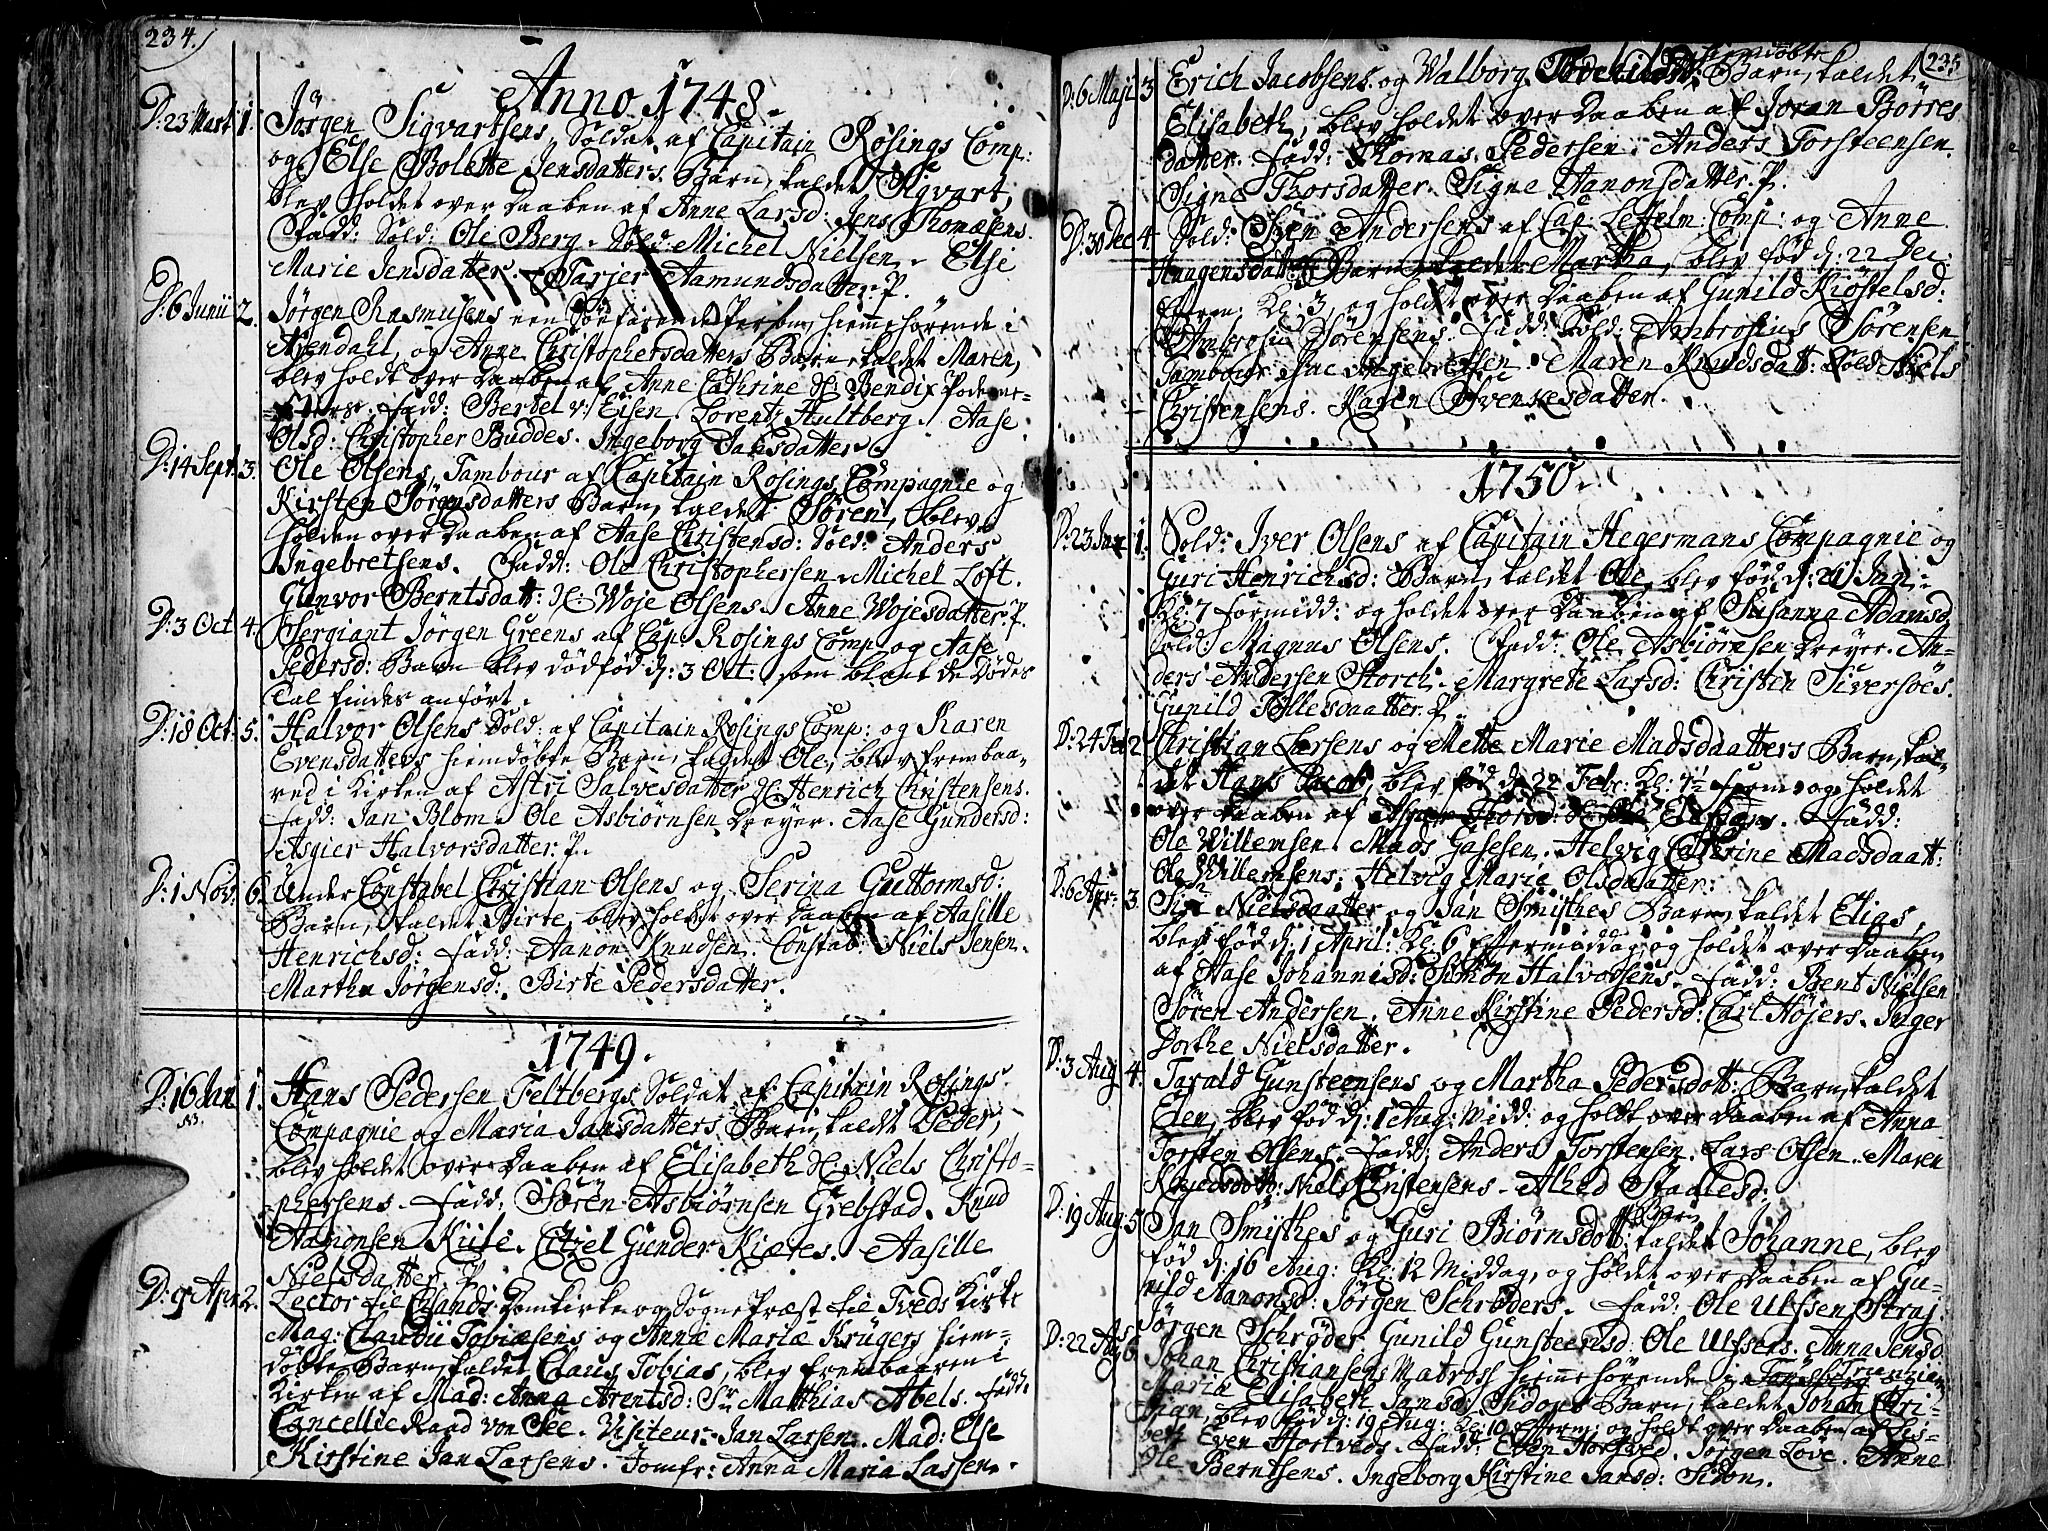 234.
Anno 1748.
D: 23 Mart 1. Jörgen Sigvartsens, Soldat af Capitain Rosings Comp:
og Else Bolette Jensdatters Barn, kaldet Sigvart,
blev holdet over Daaben af Anne Larsd: Jens Thomæsens.
Fadd: Sold: Ole Berg. Sold: Michel Nielsen. Else
Marie Jensdatter. Tarjer Aamundsdatter. P.
D: 6 Junii 2. Jörgen Rasmusens een Söefarende Person, hiemmehörende i
Arendahl, og Anne Christophersdatters Barn, kaldet Maren,
blev holdt over Daaben af Anne Cathrine Hr: Bendix
Fadd: Bertel v: Eisen. Lorentz Hultberg. Aase
Olsd: Christopher Buddes. Ingeborg
D: 14 Sept. 3. Ole Olsens, Tambour af Capitain Rosings Compagnie og
Kirsten Sörgensdatters Barn, kaldet Sören, blev
holden over Daaben af Aase Christensd: Sold: Anders
Ingebretsens. Fadd: Ole Christophersen. Michel Loft.
Gunvor Berntsdatt: Hr: Woje Olsens. Anne Wojesdatter. P.
D: 3 Oct 4. Sergiant Jörgen Greens af Cap: Rosings Comp og Aase
Pedersd: Barn blev dödföd d: 3 Oct: som blant de Dödes
Tal findes anfört.
D: 18 Oct: 5. Halvor Olsens Sold: af Capitain Rosings Comp: og Karen
Evensdatters hiemdöbte Barn, kaldet Ole, blev frembaa-
ret i Kirken af Astri Salvesdatter Hr: Henrich Christensens.
Fadd: Jan Blom. Ole Asbiörnsen Dreyer. Aase Gundersd:
Asgier Halvorsdatter. P.
D: 1 Nov: 6. Under Constabel Christian Olsens og Serina Guttormsd:
Barn, kaldet Birte, blev holdt over Daaben af Aasille
Henrichsd: Fadd: Aanon Knudsen. Constab: Niels Jensen.
Martha Jörgensd: Birte Pedersdatter.
1749.
D: 16 Jan 1. Hans Pedersen Feltbergs Soldat af Capitain Rosings
Compagnie og Maria Jansdatters Barn, kaldt Peder,
blev holdet over Daaben af Elisabeth Hr: Niels Christo-
phersens. Fadd: Sören Asbiörnsen Grebstad. Knud
Aanonsen Kiile. Citzel Gunder Kiæres. Aasille
Nielsdatter. P.
D: 9 Apr 2. Lector til Chrsands Domkirke og Sogne Præst til Tveds Kirke
Mag: Claudii Tobiæsens og Annæ Mariæ Krügers hiem-
döbte Barn, kaldet Claus Tobias, blev frembaaren i
Kirken af Mad: Anna Arentsd: Sr. Matthias Abels. Fadd:
Cancellie Raad von See. Visiteur Jan Larsen. Mad: Else
Kirstine Jan Larsens. Jomfr: Anna Maria Lassen.
235
D: 6 Maji 3 Erich Jacobsens og Walborg hiemdöbte Barn, kaldet
Elisabeth, blev holdet over Daaben af Joran Börres
datter. Fadd: Thomas Pedersen. Anders Torsteensen.
Signe Thorsdatter. Signe Aanonsdatter. P.
D: 30 Dec 4. Sold: Sven Andersens af Cap: Comp: og Anne
Haagensdatters Barn, kaldet Martha, blev föd d: 22 Dec:
Kl: 3, og holdt over Daaben af Gunild Kiöstelsd:
Ambrosii Sörensens. Fadd: Sold: Ambrosius Sörensen.
Tambour Isac Ingebretsen. Maren Knudsdatt: Sold Niels
Christensens. Karen Svenkesdatter.
1750.
D: 23 Jan 1. Sold: Iver Olsens af Capitain Hegermans Compagnie og
Guri Henrichsd: Barn, kaldet Ole, blev föd d: 21 Jan:
Kl: 7 formidd: og holdet over Daaben af Susanna Adamsd
Sold: Magnus Olsens. Fadd: Ole Asbiörnsen Dreyer. An-
ders Andersen Storch. Margrete Larsd: Christen Siversöes.
Gunild Tollesdaatter. P.
D: 24 Feb 2 Christian Larsens og Mette Marie Madsdaatters Barn, kal-
det Hans Jacob, blev föd d 22 Febr: Kl: 7½ form: og holdet
over Daaben af Fadd:
Ole Willemsen. Mads Gasesen. Helvig Cathrine Madsdaat:
Ole Willemsens. Helvig Marie Olsdaatter.
D: 6 Apr: 3. Siri Nielsdaatter og Jan Smithes Barn, kaldet Elias,
blev föd d: 1 April: Kl: 6 Eftermiddag, og holdet over Daaben
af Aase Johannisd: Simon Halvorsens. Fadd: Bent Nielsen
Sören Andersen. Anne Kirstine Pedersd: Carl Höjers. Inger
Dorthe Nielsdatter.
D: 3 Aug 4. Tarald Gunsteensens og Martha Pedersdott: Barn, kaldet
Elen, blev föd d: 1 Aug: Midd: og holdt over Daaben af Anna
Torsten Olsens. Fadd: Anders Torstensen. Lars Olsen. Maren
Knudsdott: Niels Christensens. Alhed Staalesd:
D: 19 Aug 5. Jan Smithes og Guri Biörnsdott: Barn kaldet Johanne, blev
föd d: 16 Aug: Kl: 12 Middag, og holdet over Daaben af Gu-
nild Aanonsd: Jörgen Schröders. Fadd: Ole Ulfsen Straj.
Jörgen Schröder Gunild Gunsteensd: Ole Ulfsens. Anna Jensd:
D: 22 Aug 6. Johan Christiansens Matross hiemmehörende i
Maria Elisabeth Jansd: Sidons Barn, kaldet Johan Chri-
stian, blev föd d: 19 Aug: Kl: 10 Efterm: og holdt over Daaben af Lis-
beth Even Hortveds. Fadd: Even Hortved. Jörgen Love. Anne
Ole Berntsens. Ingeborg Kirstine Jansd: Sidon.